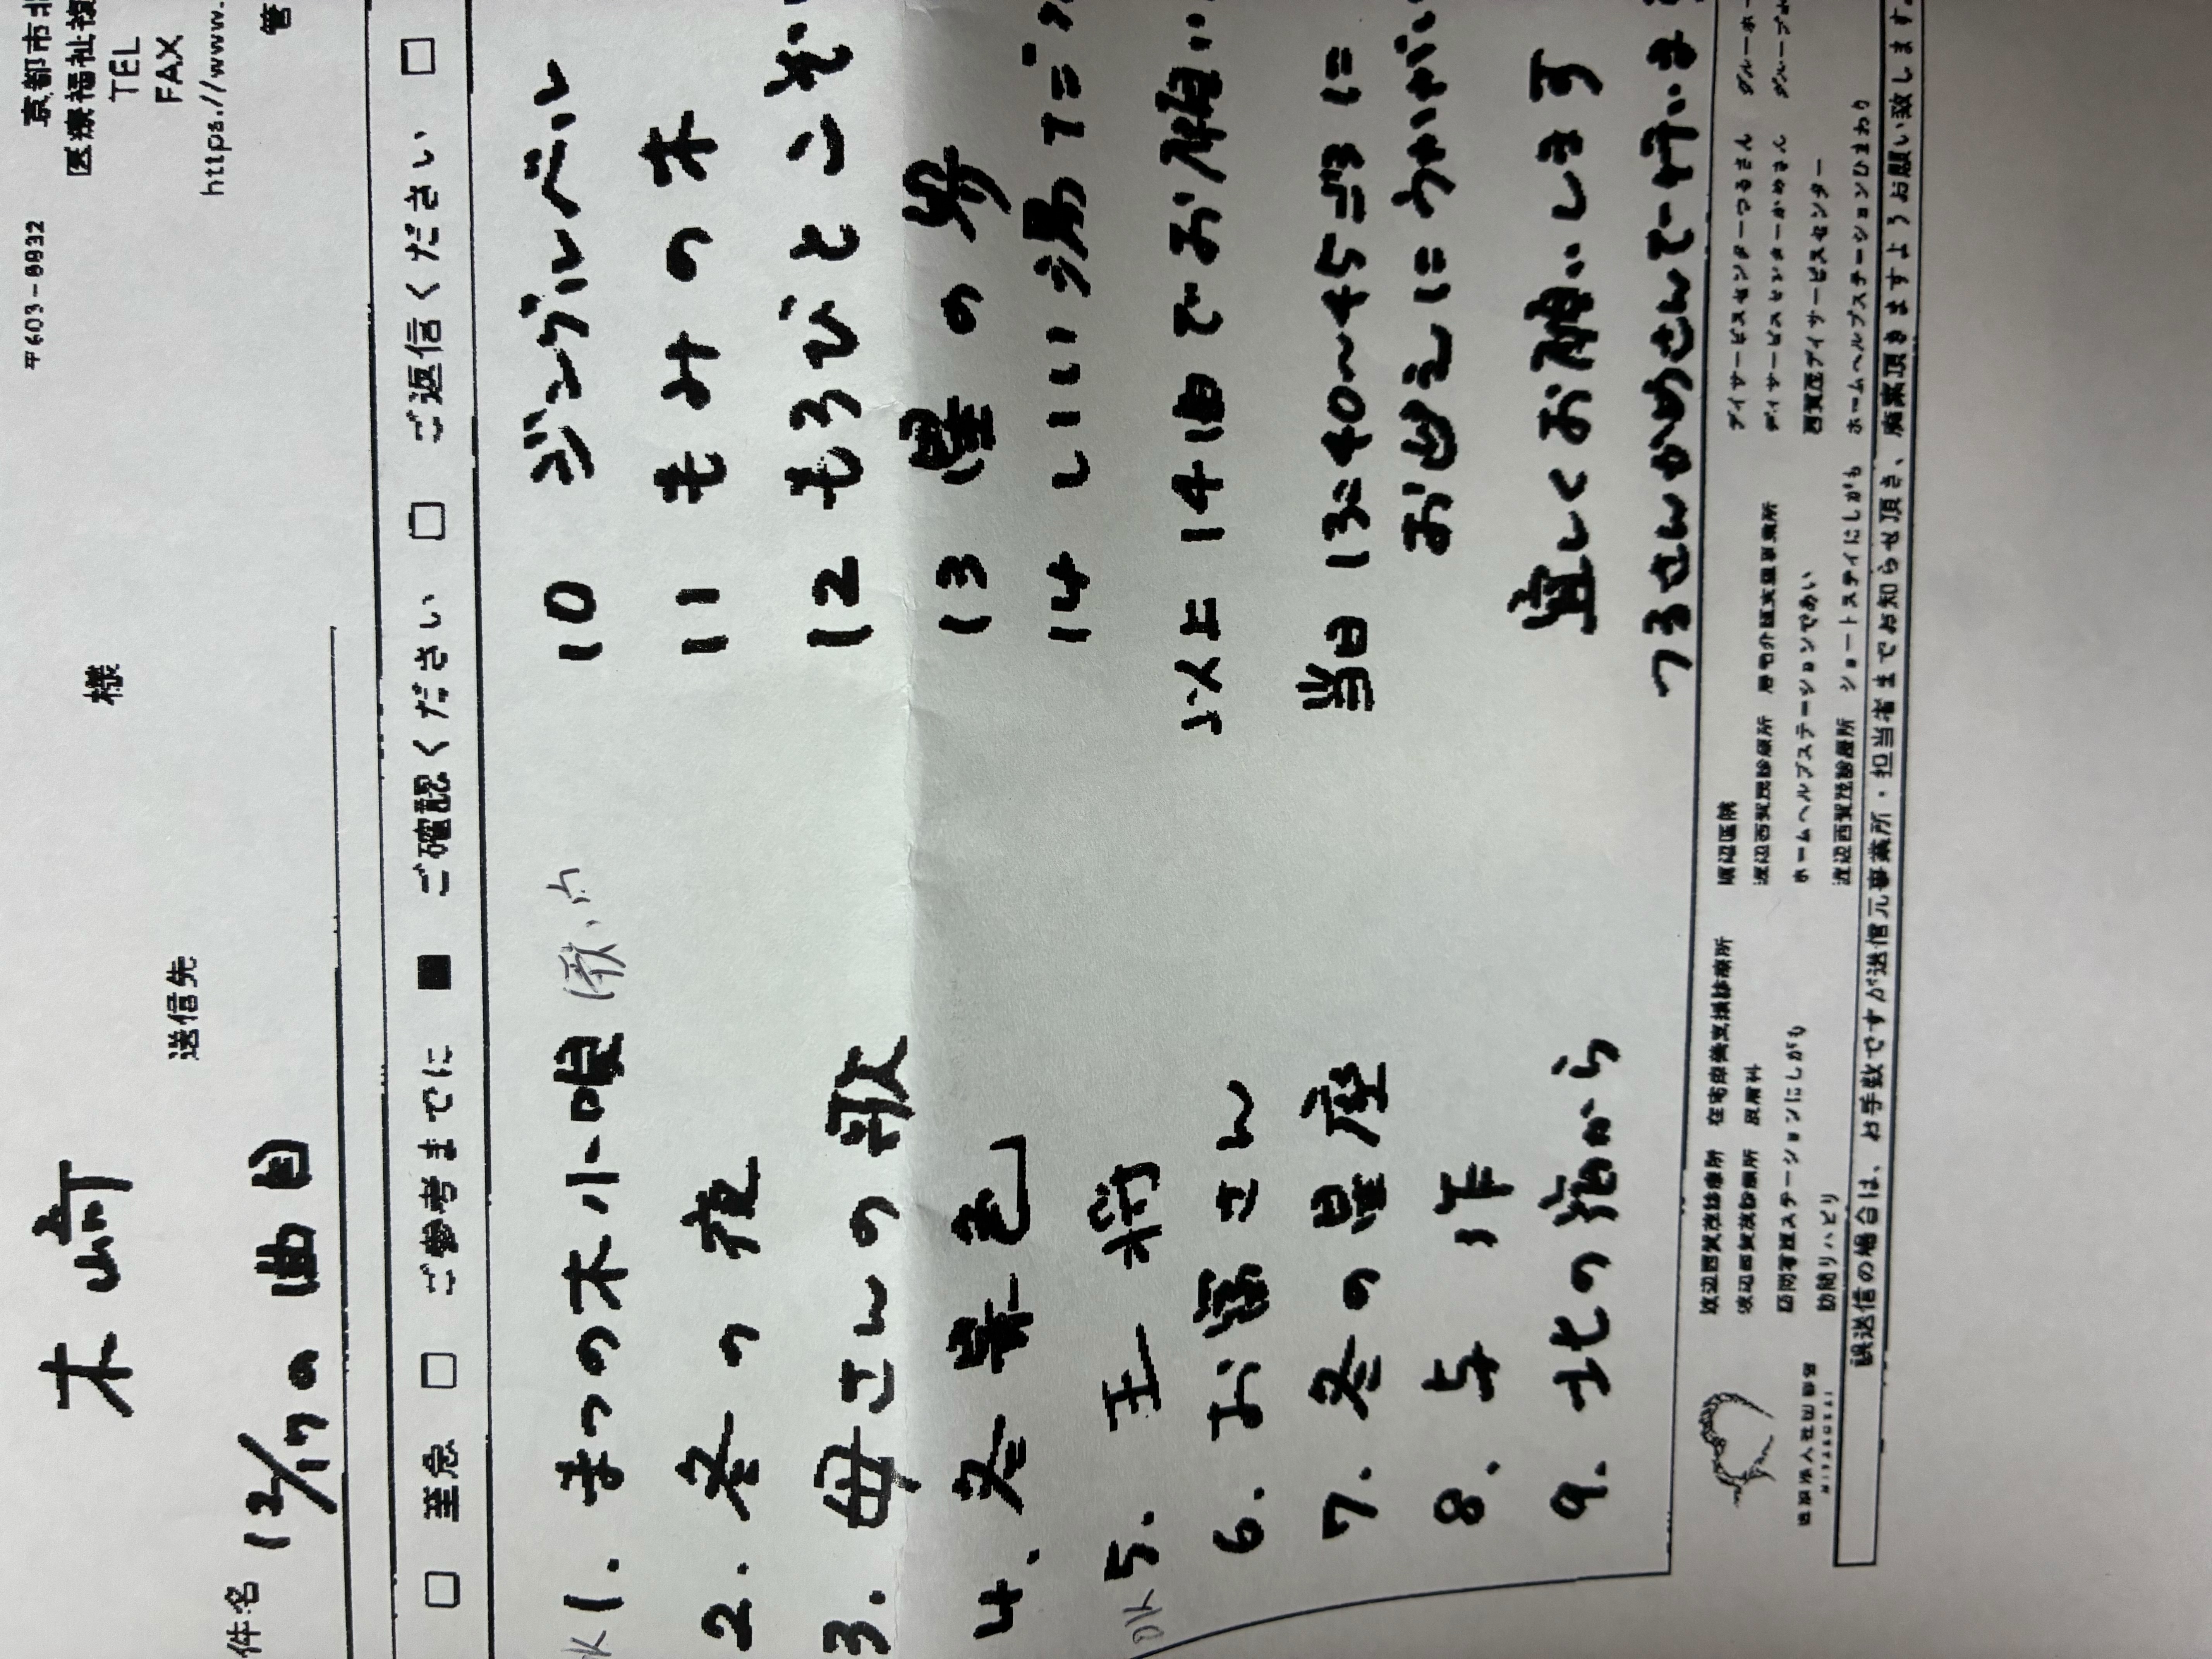 木崎 様
〒603-8832 京都市北
医療福祉複
TEL
FAX
https://www.
管
送信先
件名 12/17の曲目
□ 至急 □ ご参考までに ■ ご確認ください □ ご返信ください □
1. まつの木小唄 (歌、
2. 冬の夜
3. 母さんの歌
4. 冬景色
OK 5. 王将
6. お富さん
7. 冬の星座
8. 与作
9. 北の宿から
10 ジングルベル
11 もみの木
12 もろびとこぞ
13 星の界
14 いい湯だ
以上14曲でお願い
当日 13:40〜45頃に
お迎えにうかがい
宜しくお願いします
つるさんかめさんで行いま
渡辺西賀茂診療所 在宅療養支援診療所
渡辺西賀茂診療所 皮膚科
訪問看護ステーションにしがも
訪問リハビリ
渡辺医院
渡辺西賀茂診療所 居宅介護支援事業所
ホームヘルプステーションであい
渡辺西賀茂診療所 ショートステイにしがも
デイサービスセンターつるさん
デイサービスセンターかめさん
西賀茂デイサービスセンター
ホームヘルプステーションひまわり
グループホー
誤送信の場合は、お手数ですが送信元事業所・担当者までお知らせ頂き、廃棄頂きますようお願い致します。